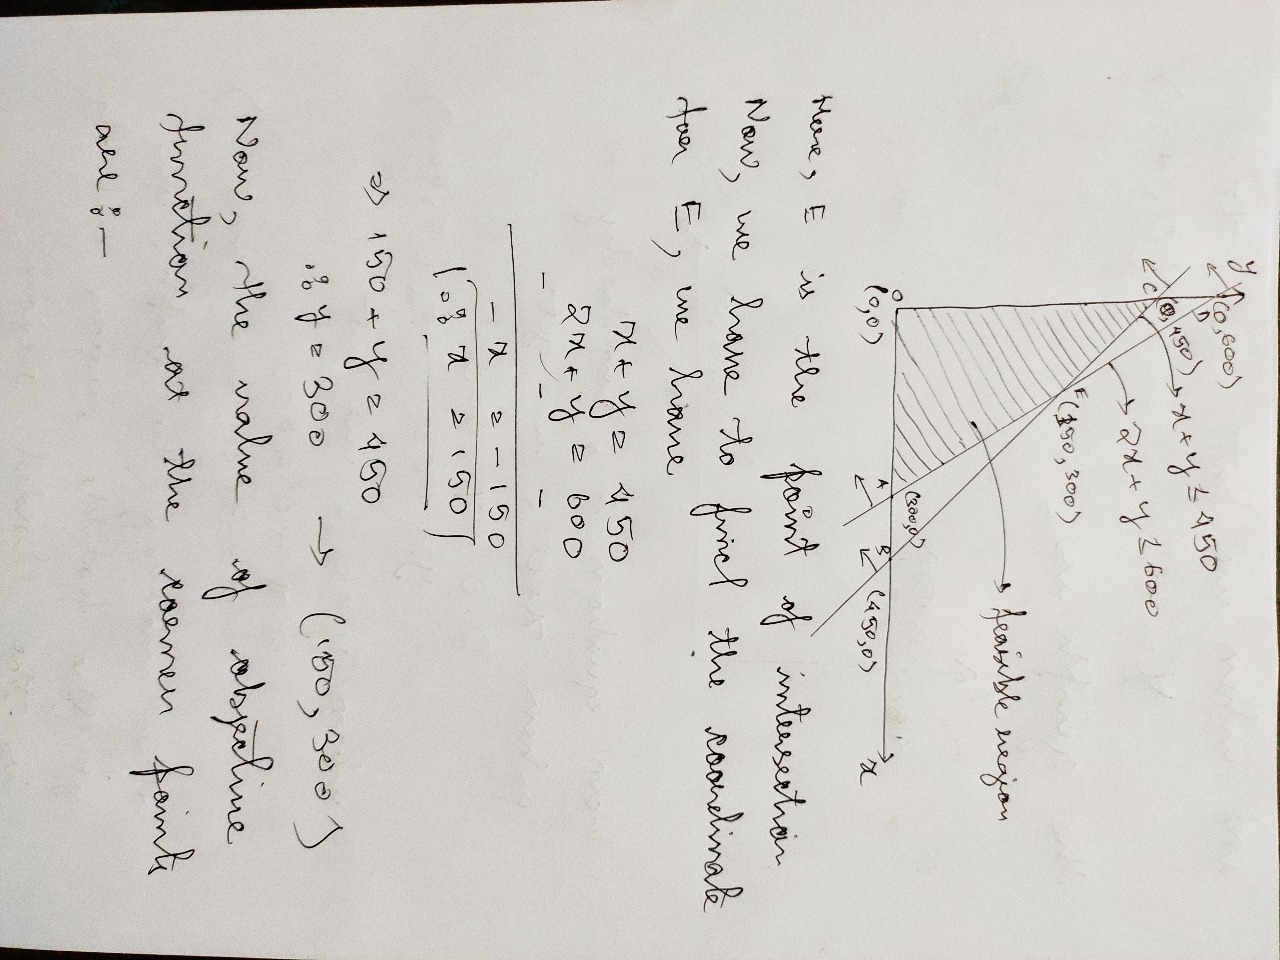 y
D (0,600)
C (0,450)
x+y ≤ 450
2x+y ≤ 600
E (150,300)
feasible region
O
(0,0)
A (300,0)
B (450,0)
x
Here, E is the point of intersection
Now, we have to find the coordinate
for E, we have
x+y = 450
2x+y = 600
- - -
-x = -150
∴ x = 150
⇒ 150+y = 450
∴ y = 300 → (150,300)
Now, the value of objective
function at the corner points
are :-